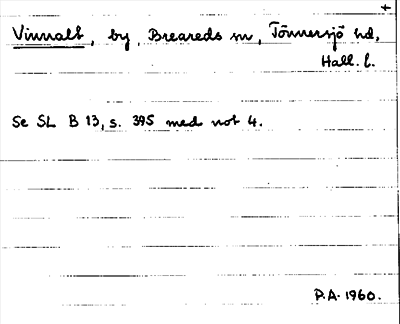 +
Vinnalt, by, Breareds sn, Tönnersjö hd,
Hall. l.
Se SL B 13, s. 395 med not 4.
P.A. 1960.